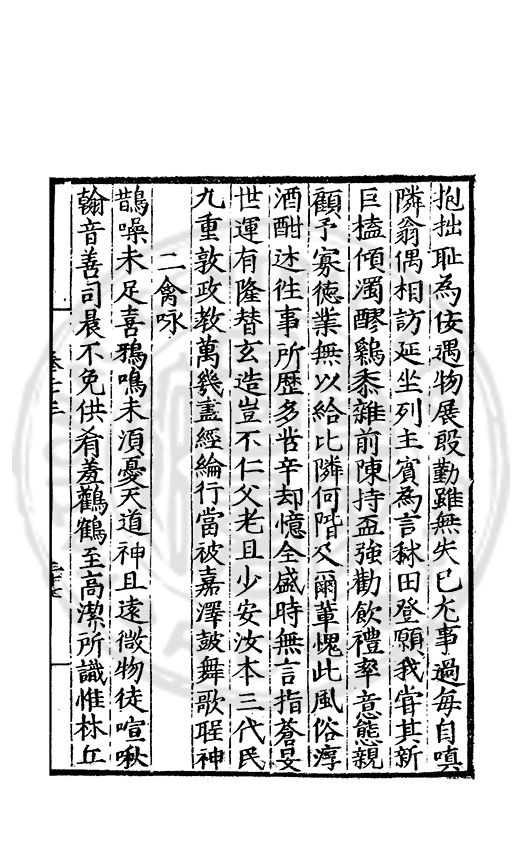 抱拙恥為佞遇物展殷勤雖無失己尤事過每自嗔
隣翁偶相訪延坐列主賓為言秫田登願我嘗其新
巨榼傾濁醪鷄黍雜前陳持盃強勸飲禮率意態親
顧予寡德業無以給比隣何階及爾輩愧此風俗淳
酒酣述徃事所歴多苦辛却憶全盛時無言指蒼旻
世運有隆替玄造豈不仁父老且少安汝本三代民
九重敦政教萬幾盡經綸行當被嘉澤鼓舞歌聖神
二禽咏
鵲噪未足喜鴉鳴未須憂天道神且遠微物徒喧啾
翰音善司晨不免供肴羞鸛鶴至高潔所識惟林丘